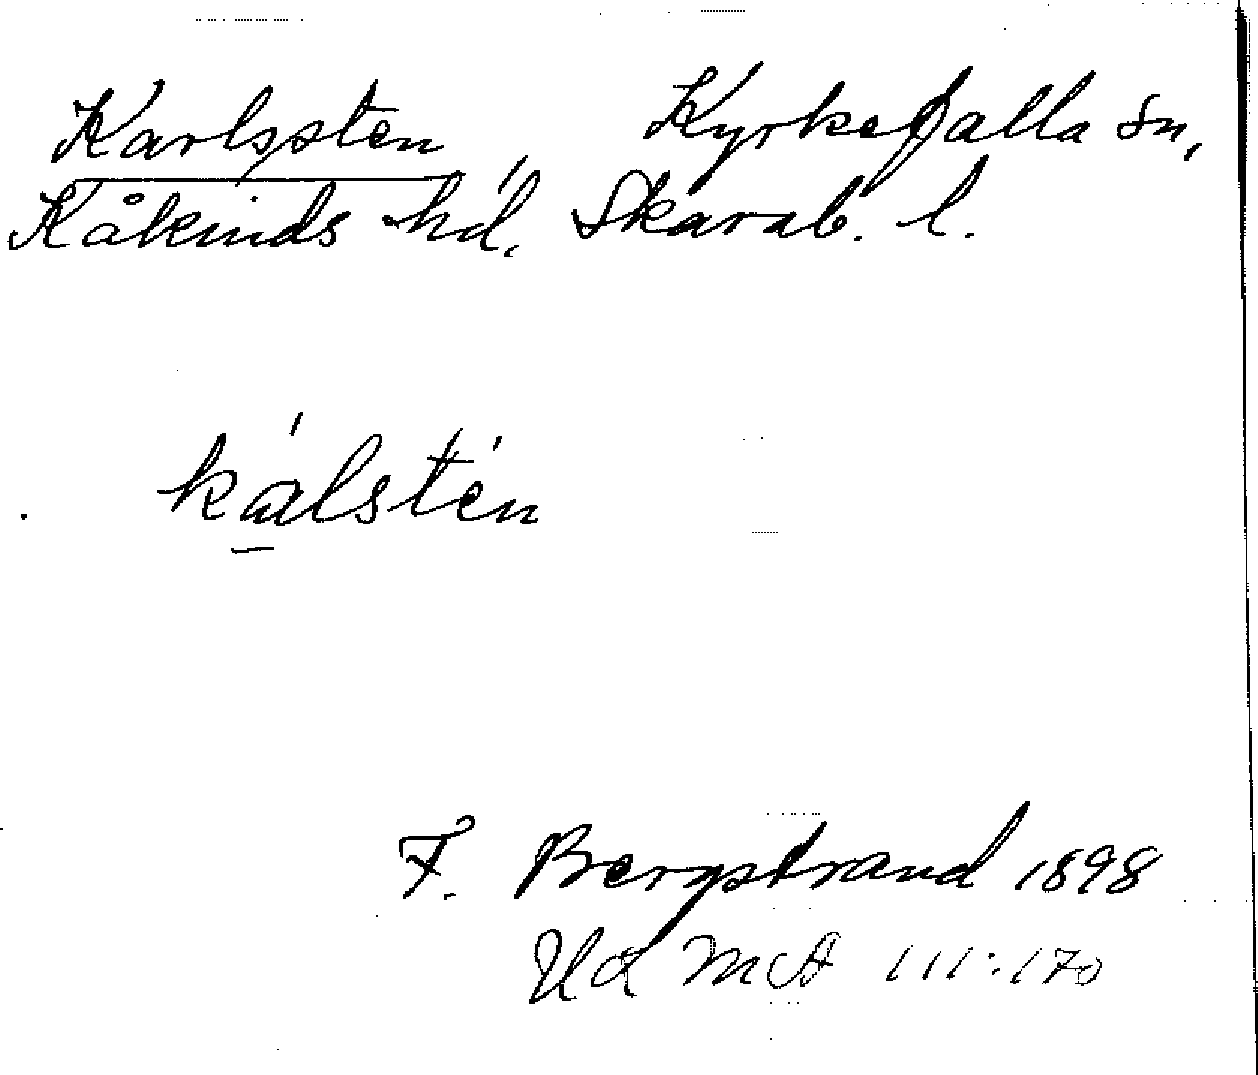 Karlsten, Kyrkefalla sn,
Kåkinds hd, Skarab. l.
kálstén
F. Bergstrand 1898
111:170